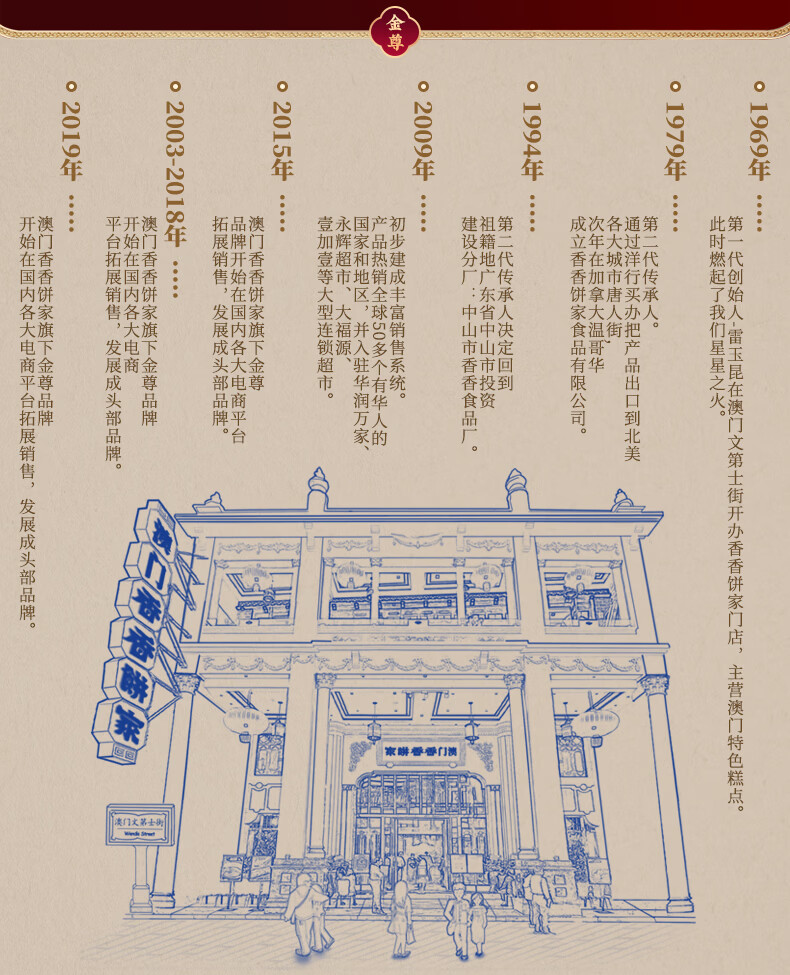 金尊
1969年
第一代创始人-雷玉昆在澳门文第士街开办香香饼家门店，主营澳门特色糕点。
此时燃起了我们星星之火。
1979年
第二代传承人。
通过洋行买办把产品出口到北美
各大城市唐人街,
次年在加拿大温哥华
成立香香饼家食品有限公司。
1994年
第二代传承人决定回到
祖籍地广东省中山市投资
建设分厂：中山市香香食品厂。
2009年
初步建成丰富销售系统。
产品热销全球50多个有华人的
国家和地区，并入驻华润万家、
永辉超市、大福源、
壹加壹等大型连锁超市。
2015年
澳门香香饼家旗下金尊
品牌开始在国内各大电商平台
拓展销售，发展成头部品牌。
2003-2018年
澳门香香饼家旗下金尊品牌
开始在国内各大电商
平台拓展销售，发展成头部品牌。
2019年
澳门香香饼家旗下金尊品牌
开始在国内各大电商平台拓展销售，发展成头部品牌。
澳门香香餅家
家餅香香门澳
澳门文第士街
Wends Street